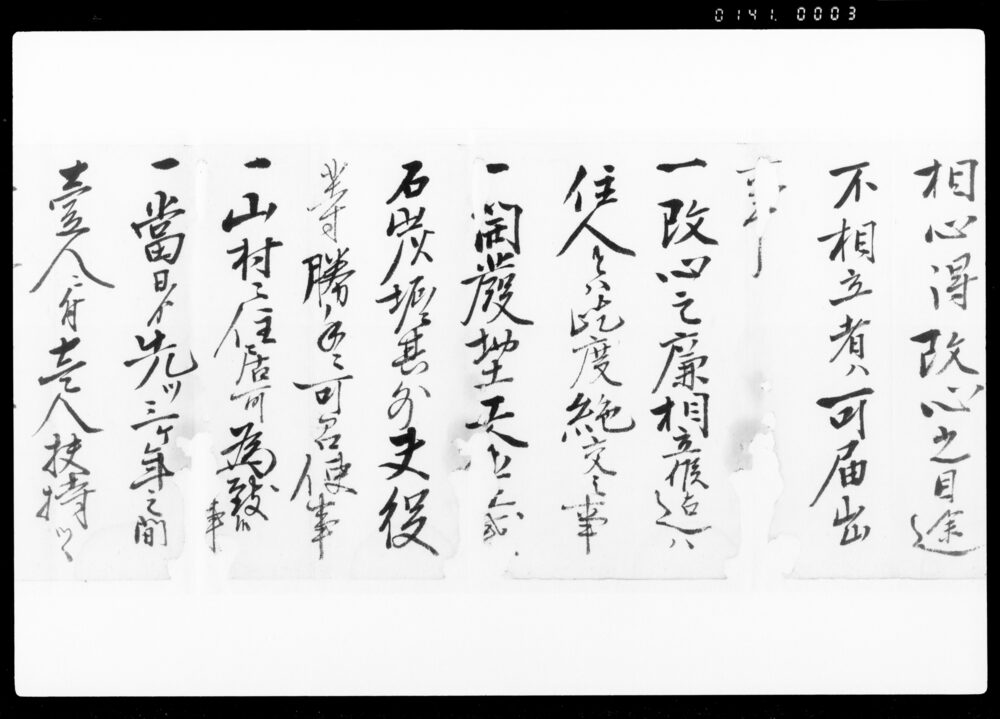 0141. 0003
相心得改心之目途
不相立者ハ可届出
事
一改心之廉相立候迄ハ
住人とハ此度絶交之事
一開發地工
石炭堀其外夫役
等勝手ニ可召使事
一山村ニ住居可為致
事
一當日ゟ先ツ三ケ年之間
壹人ニ付壹人扶持ツヽ